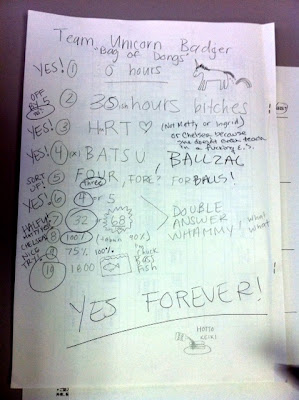 Team Unicorn Badger
"Bag of Dongs"
YES! 1 0 hours
OFF BY 5 2 35 hours bitches
YES! 3 HRT ♡ (Not Netty or Ingrid)
or Chelsea because
she doesn't even teach
in a fucking E.S.
YES! 4 BATSU, BALLZAC
SORT UP! 5 FOUR, FORE? FOR BALLS!
Three
YES! 6 4 or 5
7 32 68 DOUBLE
ANSWER
WHAMMY! what what
CHELSEA 8 100% 90%
NICE 9 75% 100%
10 1800 Fish
YES FOREVER!
HOTTO
KEIKI